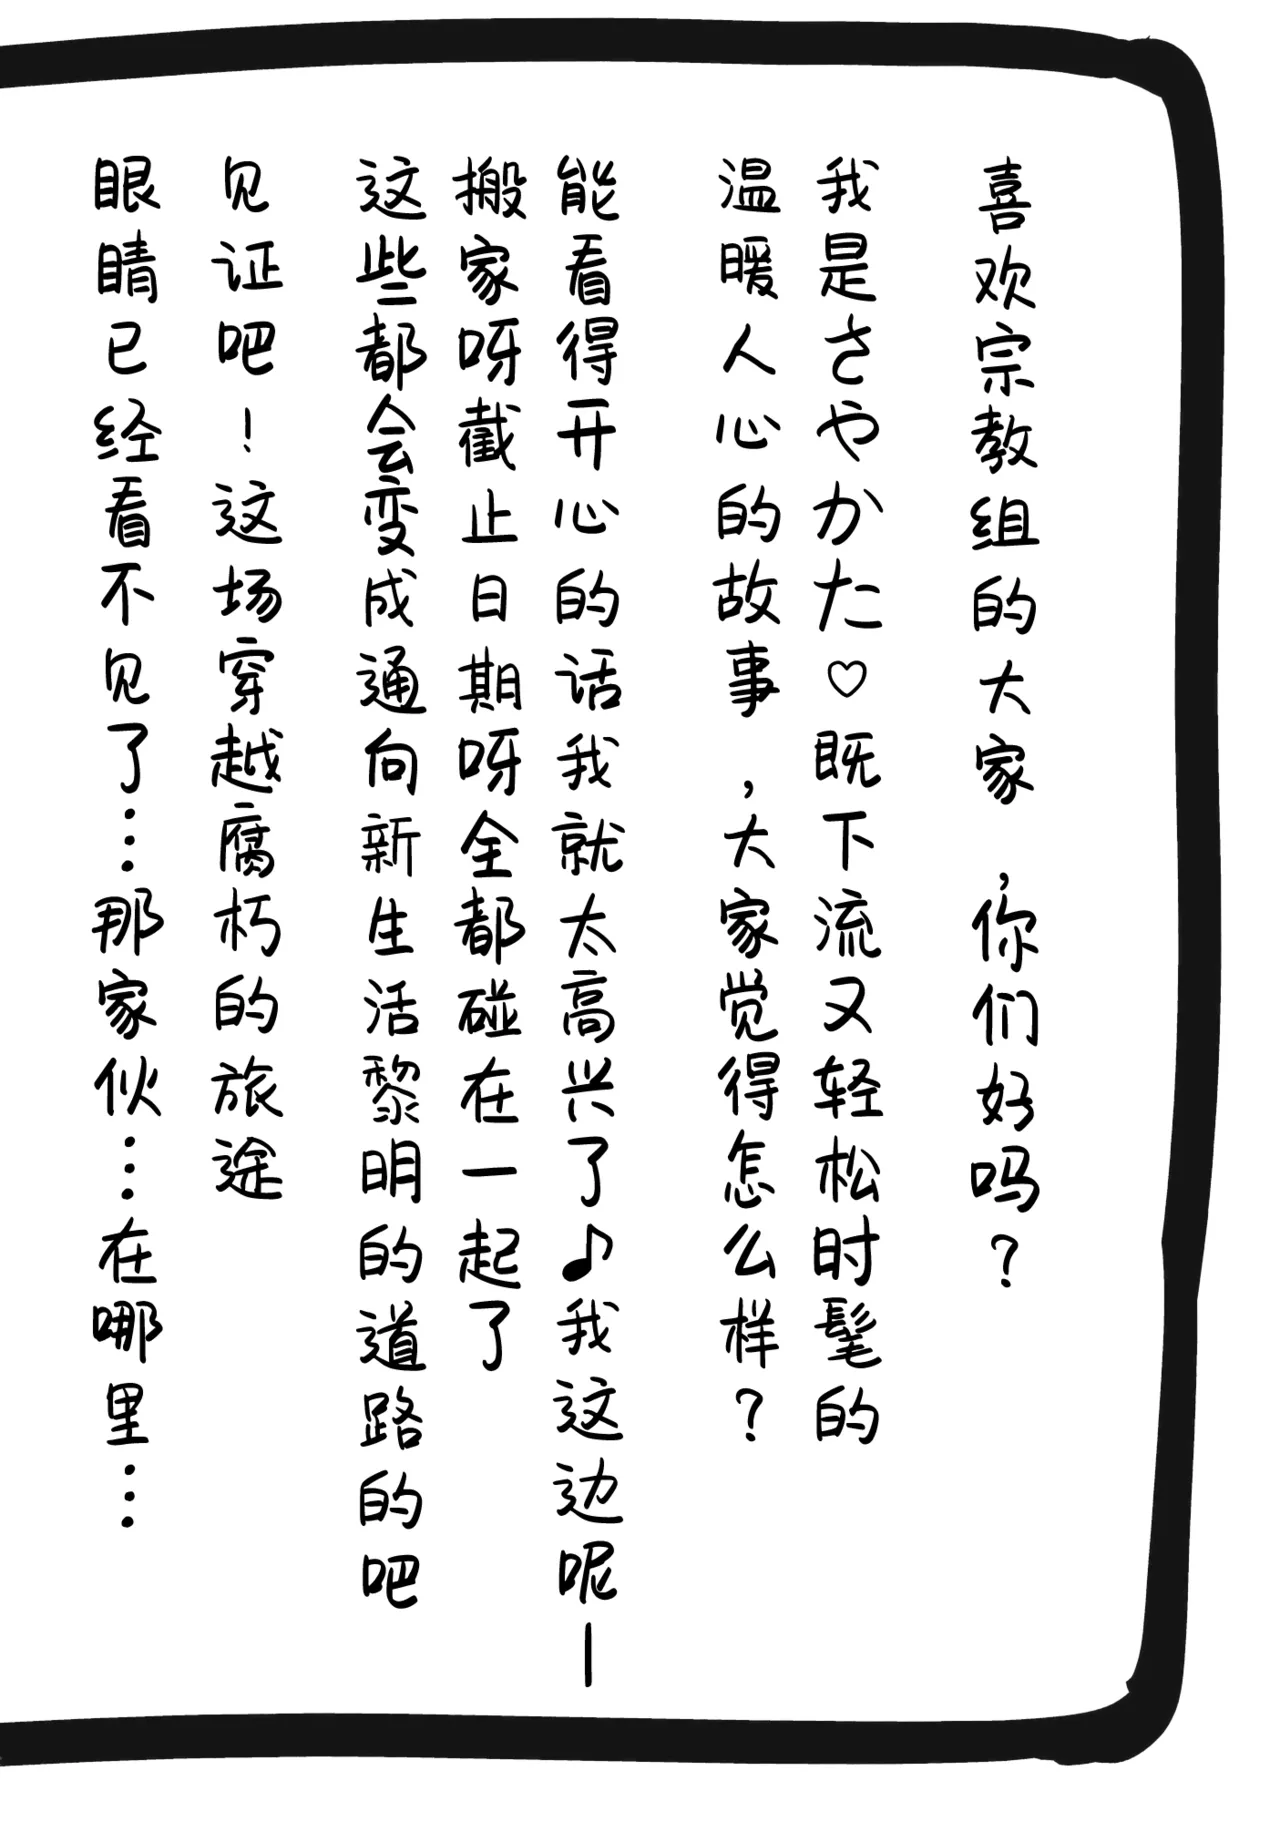 喜欢宗教组的大家，你们好吗？
我是さやかた♡既下流又轻松时髦的
温暖人心的故事，大家觉得怎么样？
能看得开心的话我就太高兴了♪我这边呢ー
搬家呀截止日期呀全都碰在一起了
这些都会变成通向新生活黎明的道路的吧
见证吧！这场穿越腐朽的旅途
眼睛已经看不见了…那家伙…在哪里…